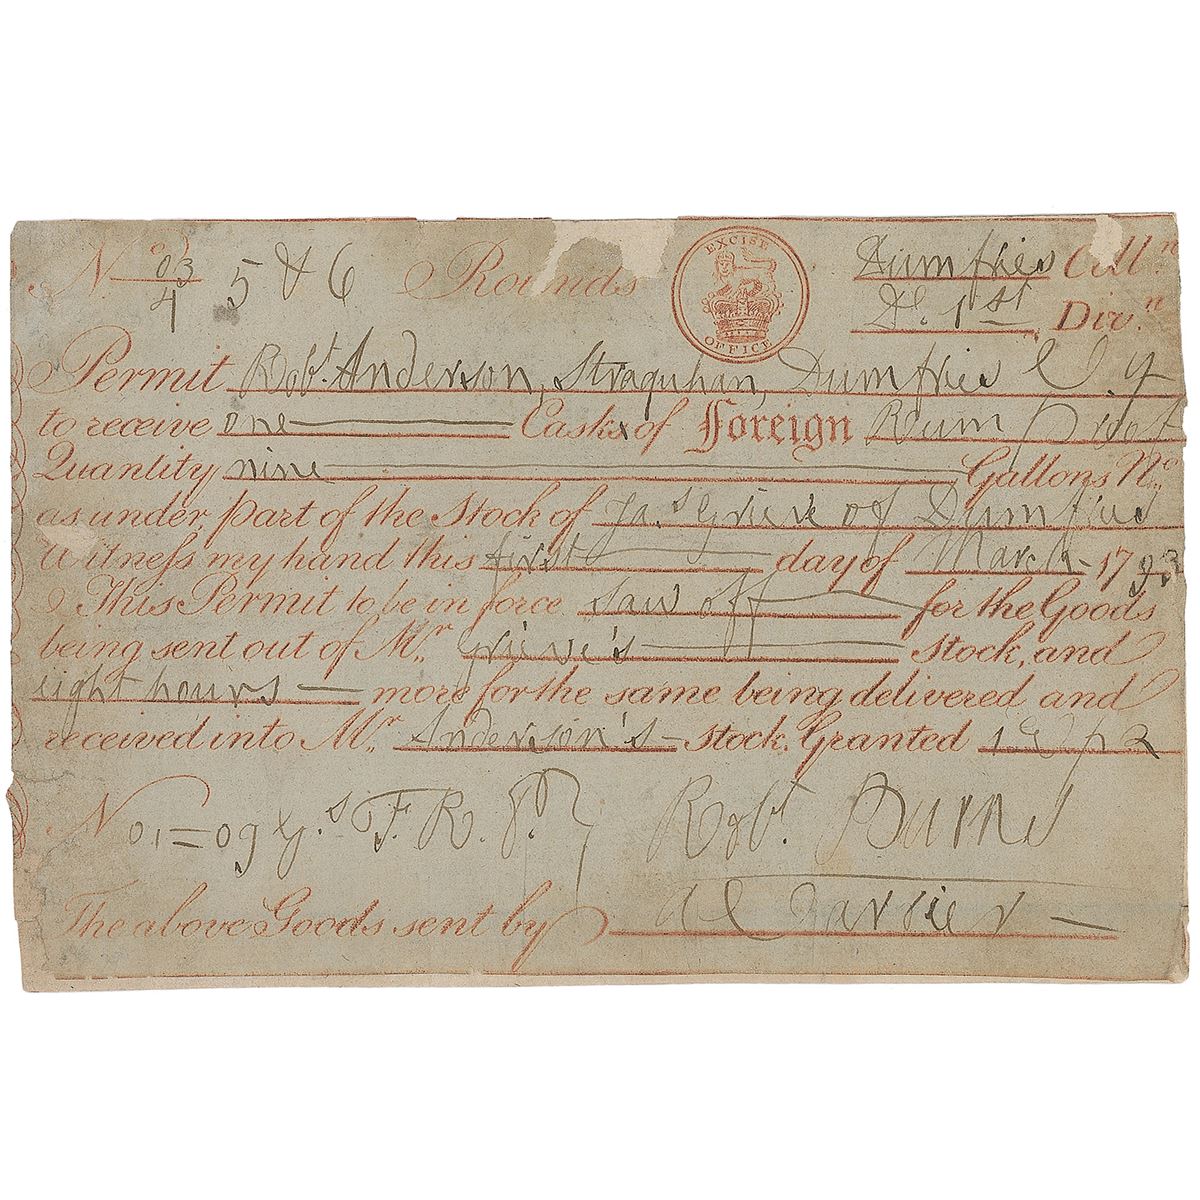 No. 03/4 5 & 6 Rounds EXCISE OFFICE Dumfries Coll.n
Do. 1st Div.n
Permit Robt. Anderson, Straquhan, Dumfries
to receive one Casks of Foreign Rum
Quantity nine Gallons No.
as under, part of the Stock of Jas. Grieve of Dumfries
Witness my hand this first day of March 1793
This Permit to be in force for the Goods
being sent out of Mr. Grieve's Stock, and
eight hours more for the same being delivered and
received into Mr. Anderson's Stock. Granted
N 01=09 Gs. F. R. Robt. Burns
The above Goods sent by a Carrier